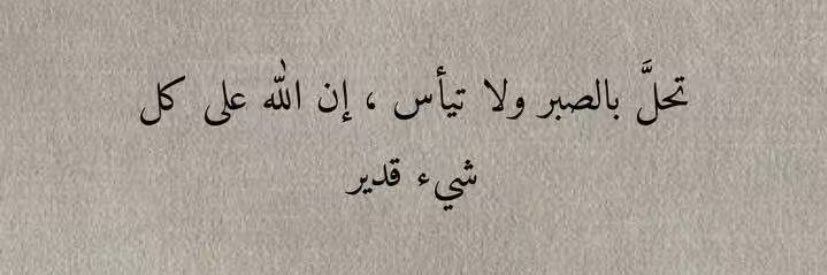 تحلَّ بالصبر ولا تيأس ، إن الله على كل
شيء قدير